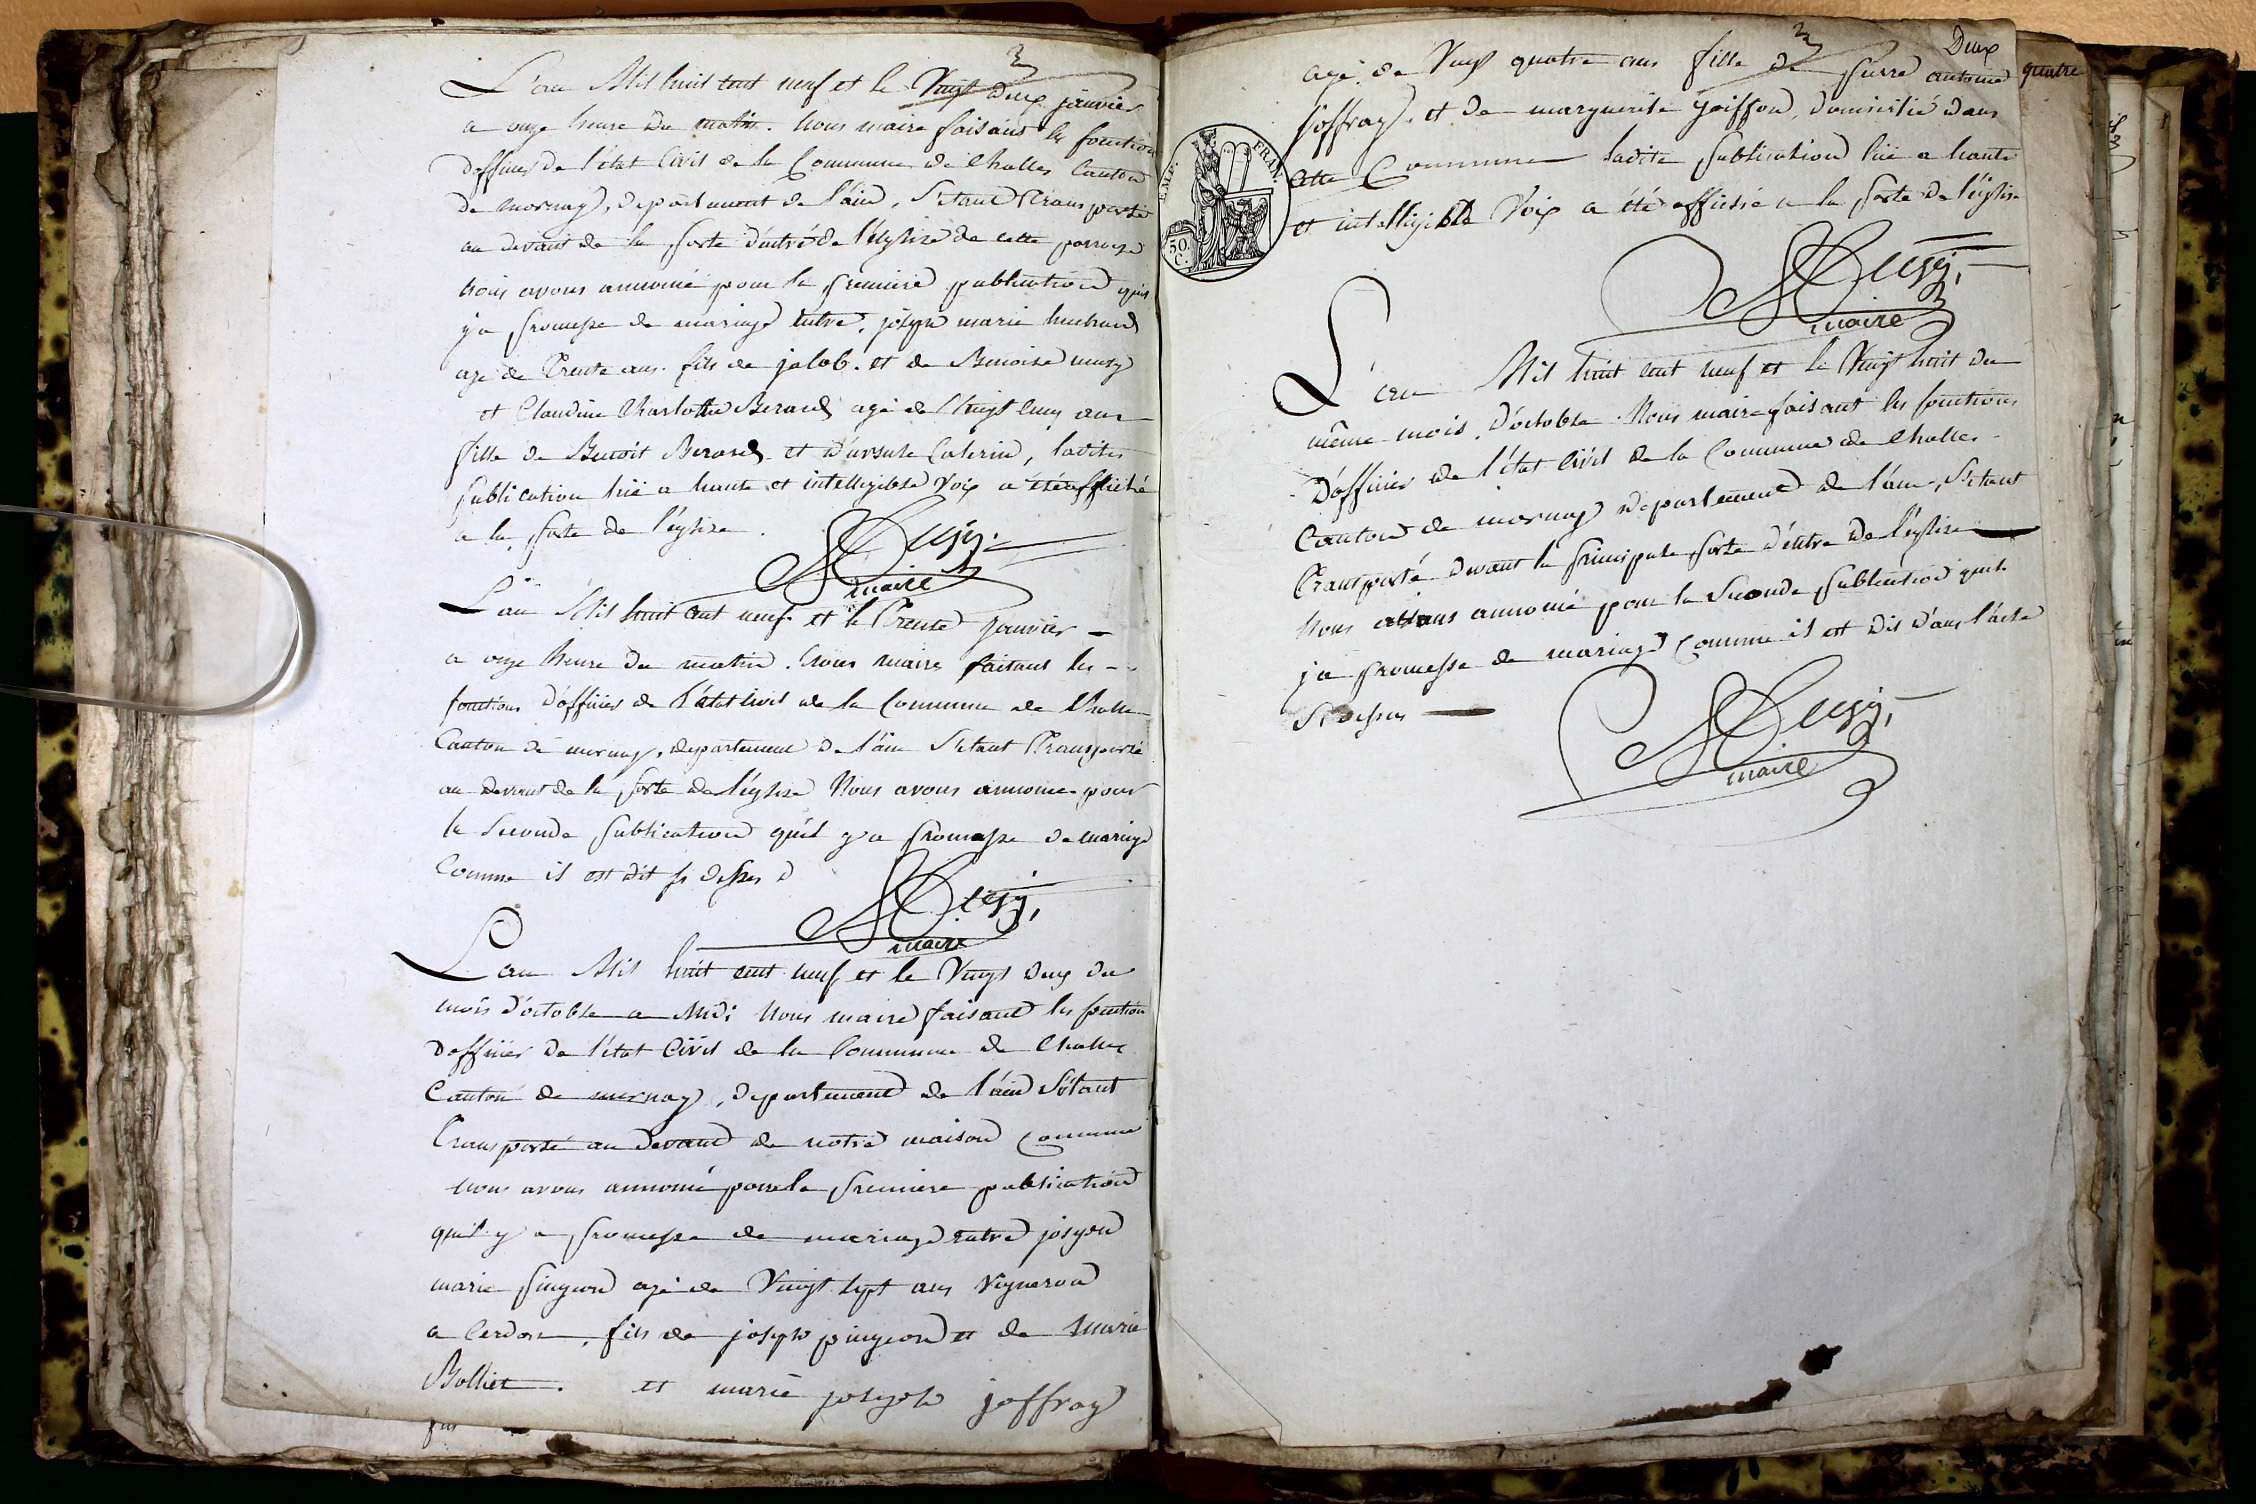 L'an Mil huit cent neuf et le Vingt Deux janvier
a onze heure Du matin. Nous maire faisant les fonction
d'officier de l'état Civil de la Commune de Challes Canton
de mornay, département de l'ain, S'etant Transporté
au devant de la porte d'entré de l'église de cette
nous avons annoncé pour la premiere publication quil
y a promesse de mariage entre, joseph marie
age de Trente ans. fils de jacob. et de Benoise
et Claudine Charlotte Berard agé de Vingt cinq ans
fille de Benoit Berard et D'ursule Caterin, ladite
publication luë a haute et intelligible Voix a été affiché
a la porte de l'église.
maire
L'an Mil huit cent neuf et le Trente janvier
a onze heure du matin. Nous maire faisant les
fonctions d'officier de l'état Civil de la Commune de Challe
Canton de mornay, departement de l'ain S'etant Transporté
au devant de la porte de l'église Nous avons annoncé pour
la Seconde publication quil y a promesse de mariage
Comme il est dit
maire
L'an Mil huit cent neuf et le Vingt deux du
mois d'octobre a Midi Nous maire faisant les fonction
d'officier de l'état Civil de la Commune de Challes
Canton de mornay, departement de l'ain S'étant
Transporté au devant de notre maison Commune
nous avons annoncé pour la premiere publication
quil y a promesse de mariage entre joseph
marie pingeon agé de Vingt sept ans Vigneron
a Cerdon, fils de joseph pingeon et de Marie
Bolliet. et marie joseph joffray
Deux
agé de Vingt quatre ans fille de pierre antoine
quatre
joffray. et de marguerite goiffon, domicilié dans
cette Commune ladite publication luë a haute
et intelligible Voix a été affiché a la porte de l'église
EMP. FRAN.
50. C.
maire
L'an Mil huit cent neuf et le Vingt huit du
même mois d'octobre. Nous maire faisant les fonctions
D'officier de l'état Civil de la Commune de Challes
Canton de mornay departement de l'ain, S'etant
Transporté devant la principale porte d'entre de l'église
Nous avons annoncé pour la Seconde publication quil
y a promesse de mariage Comme il est Dit d'ans l'acte
Si dessus
maire